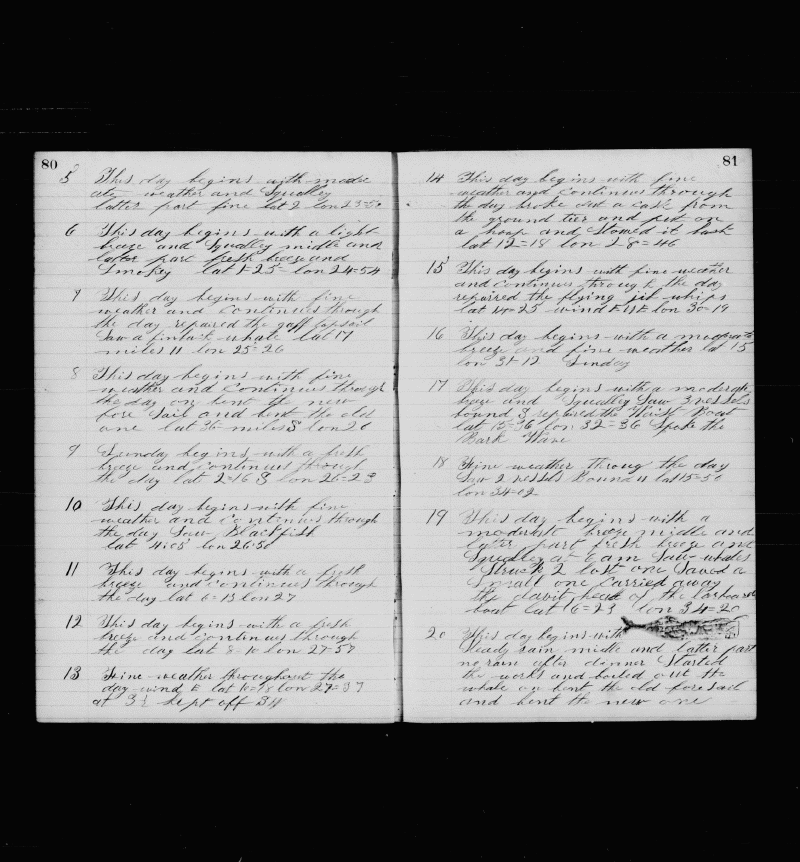 80
5 This day begins with moder
ate weather and Squalley
latter part fine lat 2 lon 23=50
6 This day begins with a light
breeze and Squalley midle and
later part fresh breeze and
Smokey lat 1=25 lon 24=54
7 This day begins with fine
weather and continues through
the day repaired the gaff topsail
Saw a finback whale lat 17
miles N lon 25=26
8 This day begins with fine
weather and continues through
the day on bent the new
fore Sail and bent the old
one lat 36 miles S lon 26
9 Sunday begins with a fresh
breeze and continues through
the day lat 2=16 S lon 26=23
10 This day begins with fine
weather and continues through
the day Saw Blackfish
lat 4=05 lon 26=50
11 This day begins with a fresh
breeze and continues through
the day lat 6=13 lon 27
12 This day begins with a fresh
breeze and continues through
the day lat 8=10 lon 27=57
13 Fine weather throughout the
day wind E lat 10=18 lon 27=37
at 3½ kept off SW
81
14 This day begins with fine
weather and continues through
the day broke out a cask from
the ground tier and put on
a hoop and Stowed it back
lat 12=18 lon 28=46
15 This day begins with fine weather
and continues through the day
repaired the flying jib whips
lat 14=25 wind lon 30=19
16 This day begins with a moderate
breeze and fine weather lat 15
lon 31=12 Sunday
17 This day begins with a moderate
breeze and Squalley Saw 3 vessels
bound S repaired the Waist Boat
lat 15=36 lon 32=36 Spoke the
Bark Wave
18 Fine weather throug the day
Saw 2 vessels Bound N lat 15=50
lon 34=02
19 This day begins with a
moderbst breeze midle and
later part fresh breeze and
Squalley at am Saw whales
Struck 2 lost one Saved a
Small one Carried away
the davit head of the larboard
boat lat 16=23 lon 34=20
20 This day begins with
Steady rain midle and latter part
no rain after dinner Started
the works and boiled out the
whale on bent the old fore sail
and bent the new one